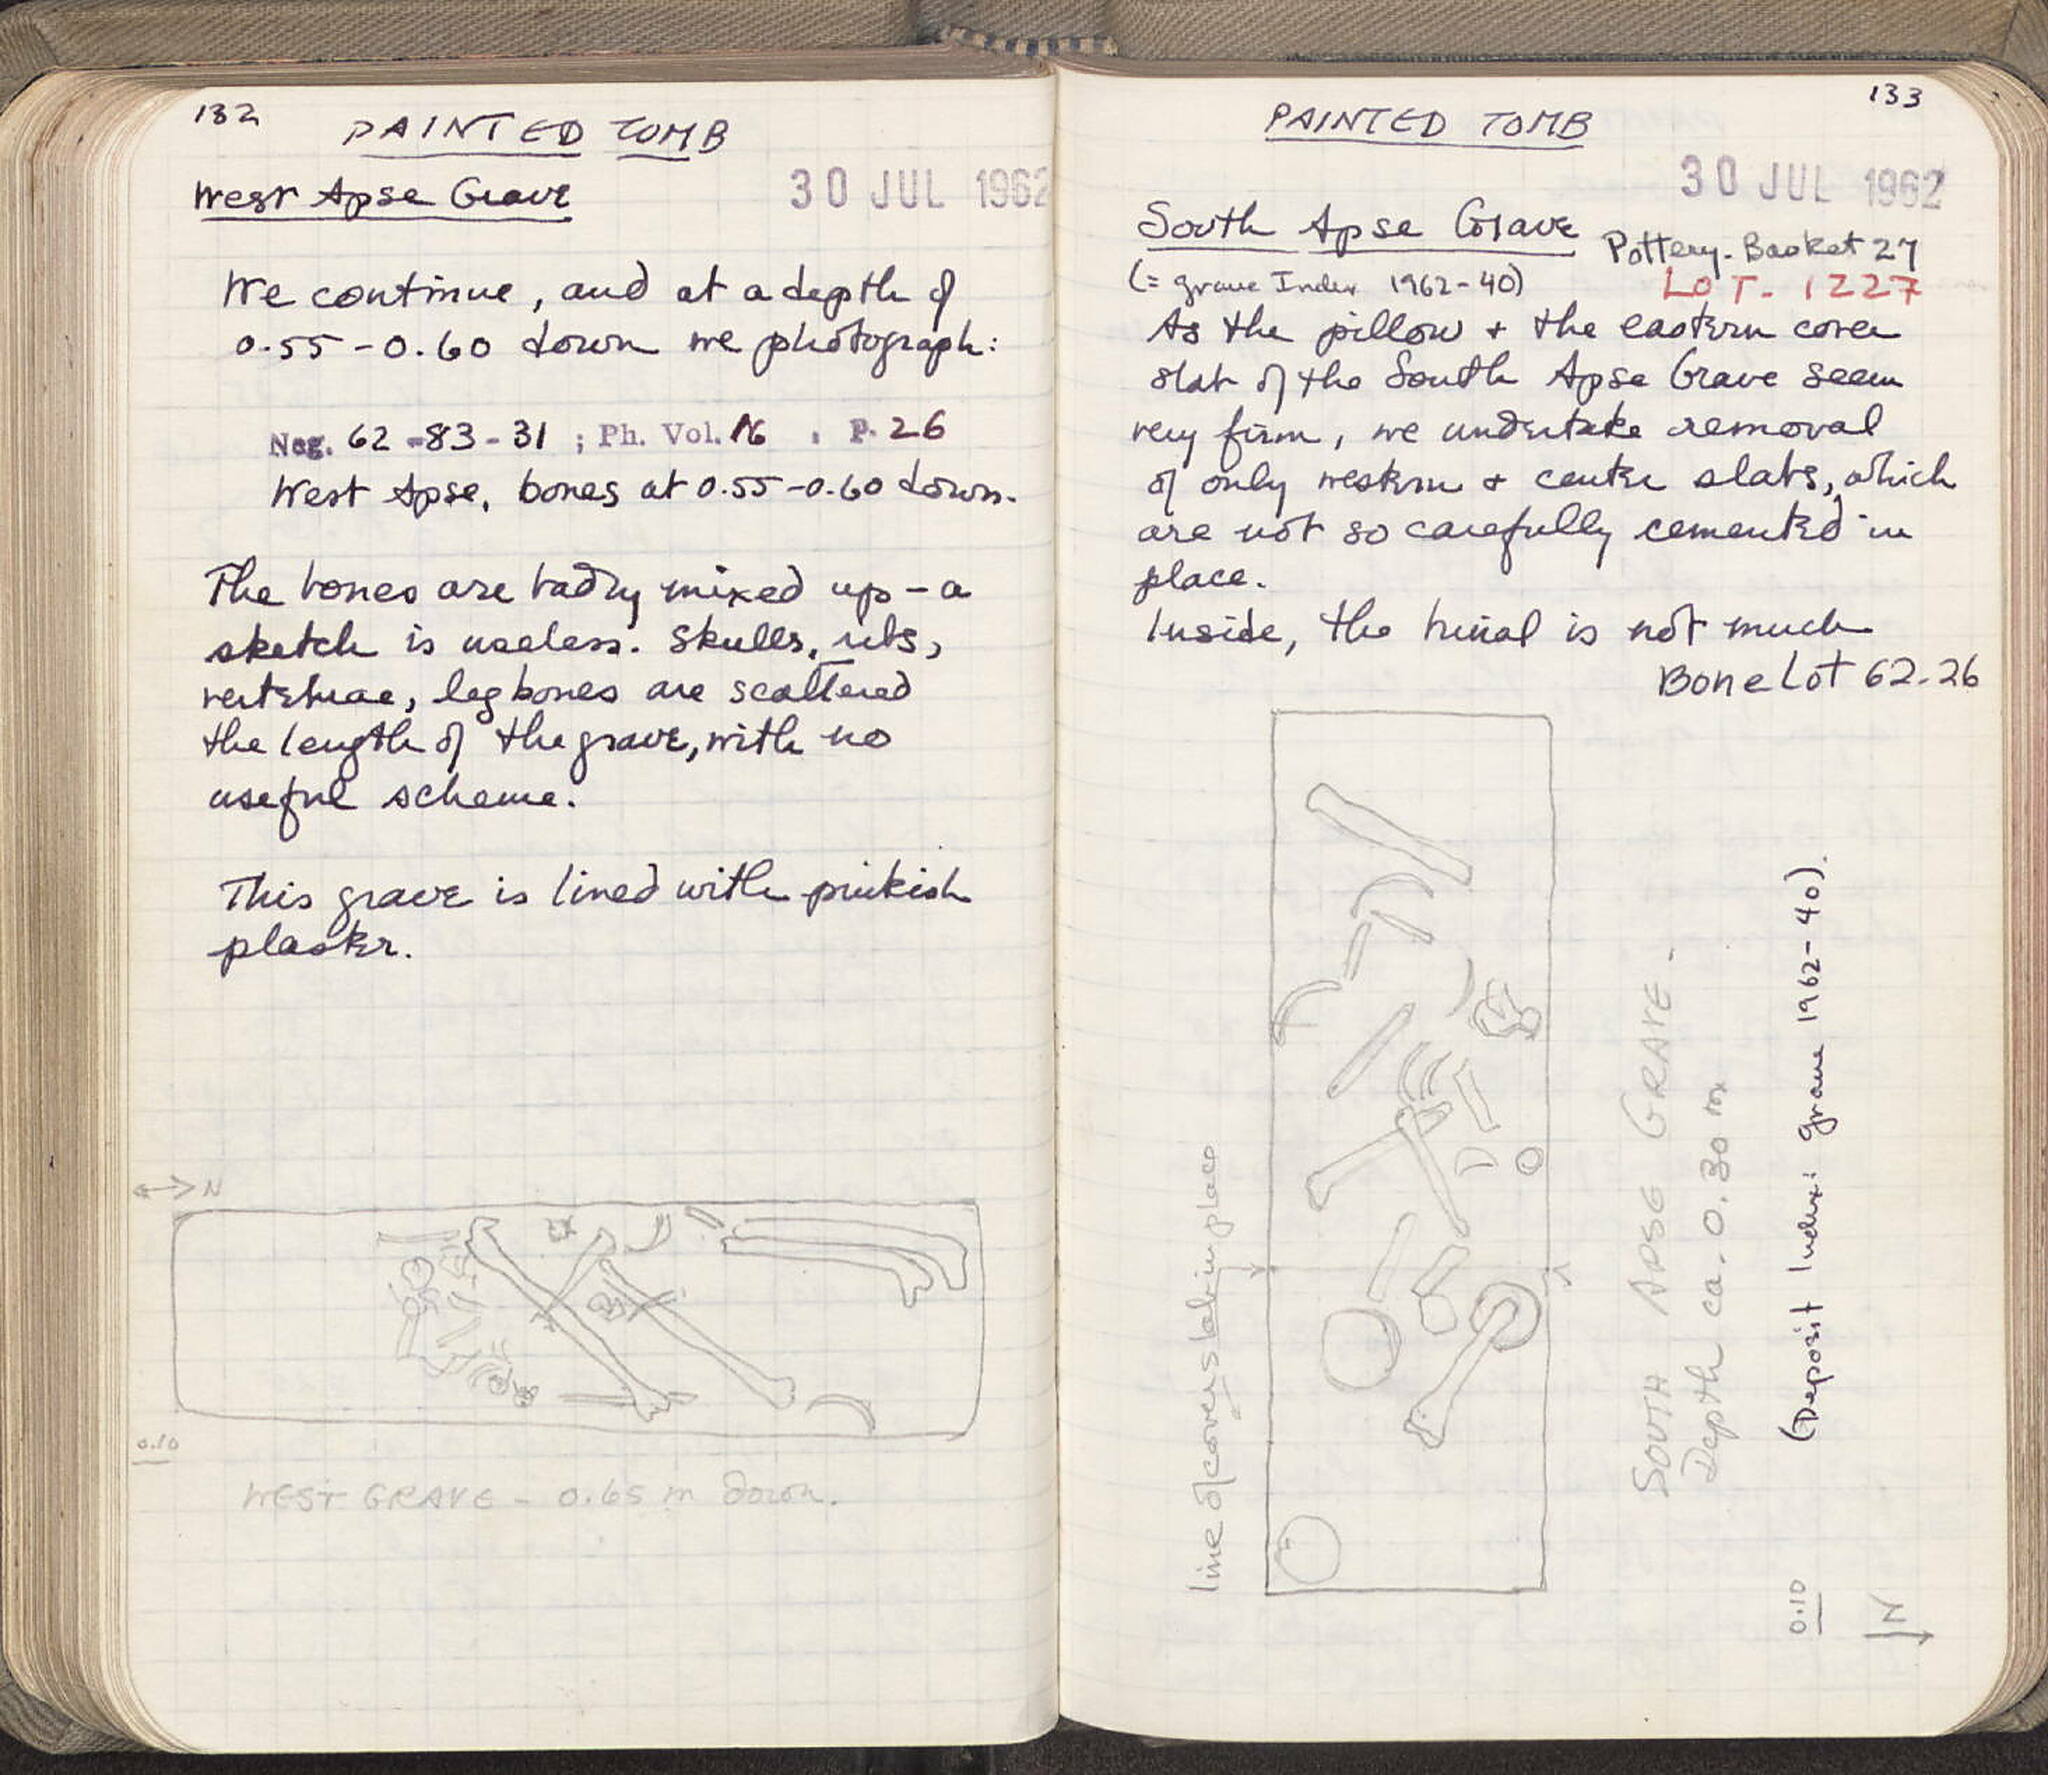 132
PAINTED TOMB
West Apse Grave
30 JUL 1962
We continue, and at a depth of
0.55-0.60 down we photograph:
Neg. 62-83-31 ; Ph. Vol. 16 , P. 26
West Apse, bones at 0.55-0.60 down.
The bones are badly mixed up - a
sketch is useless. Skulls, ribs,
vertebrae, leg bones are scattered
the length of the grave, with no
useful scheme.
This grave is lined with pinkish
plaster.
N
0.10
WEST GRAVE - 0.65 m down.
133
PAINTED TOMB
30 JUL 1962
South Apse Grave
Pottery-Basket 27
(= grave Index 1962-40)
LOT. 1227
As the pillow + the eastern cover
slab of the South Apse Grave seem
very firm, we undertake removal
of only western + center slabs, which
are not so carefully cemented in
place.
Inside, the burial is not much
Bone Lot 62.26
line of cover slab in place
SOUTH APSE GRAVE.
Depth ca. 0.30 m
(Deposit Index: grave 1962-40).
0.10
N